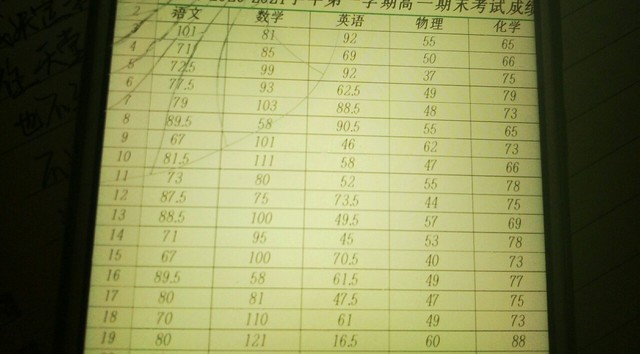 学年第一学期高一期末考试成绩
2 语文 数学 英语 物理 化学
3 101 81 92 55 65
4 71 85 69 50 66
5 72.5 99 92 37 75
6 77.5 93 62.5 49 79
7 79 103 88.5 48 73
8 89.5 58 90.5 55 65
9 67 101 46 62 73
10 81.5 111 58 47 66
11 73 80 52 55 78
12 87.5 75 73.5 44 75
13 88.5 100 49.5 57 69
14 71 95 45 53 78
15 67 100 70.5 40 73
16 89.5 58 61.5 49 77
17 80 81 47.5 47 75
18 70 110 61 49 73
19 80 121 16.5 60 88
天堂
也不